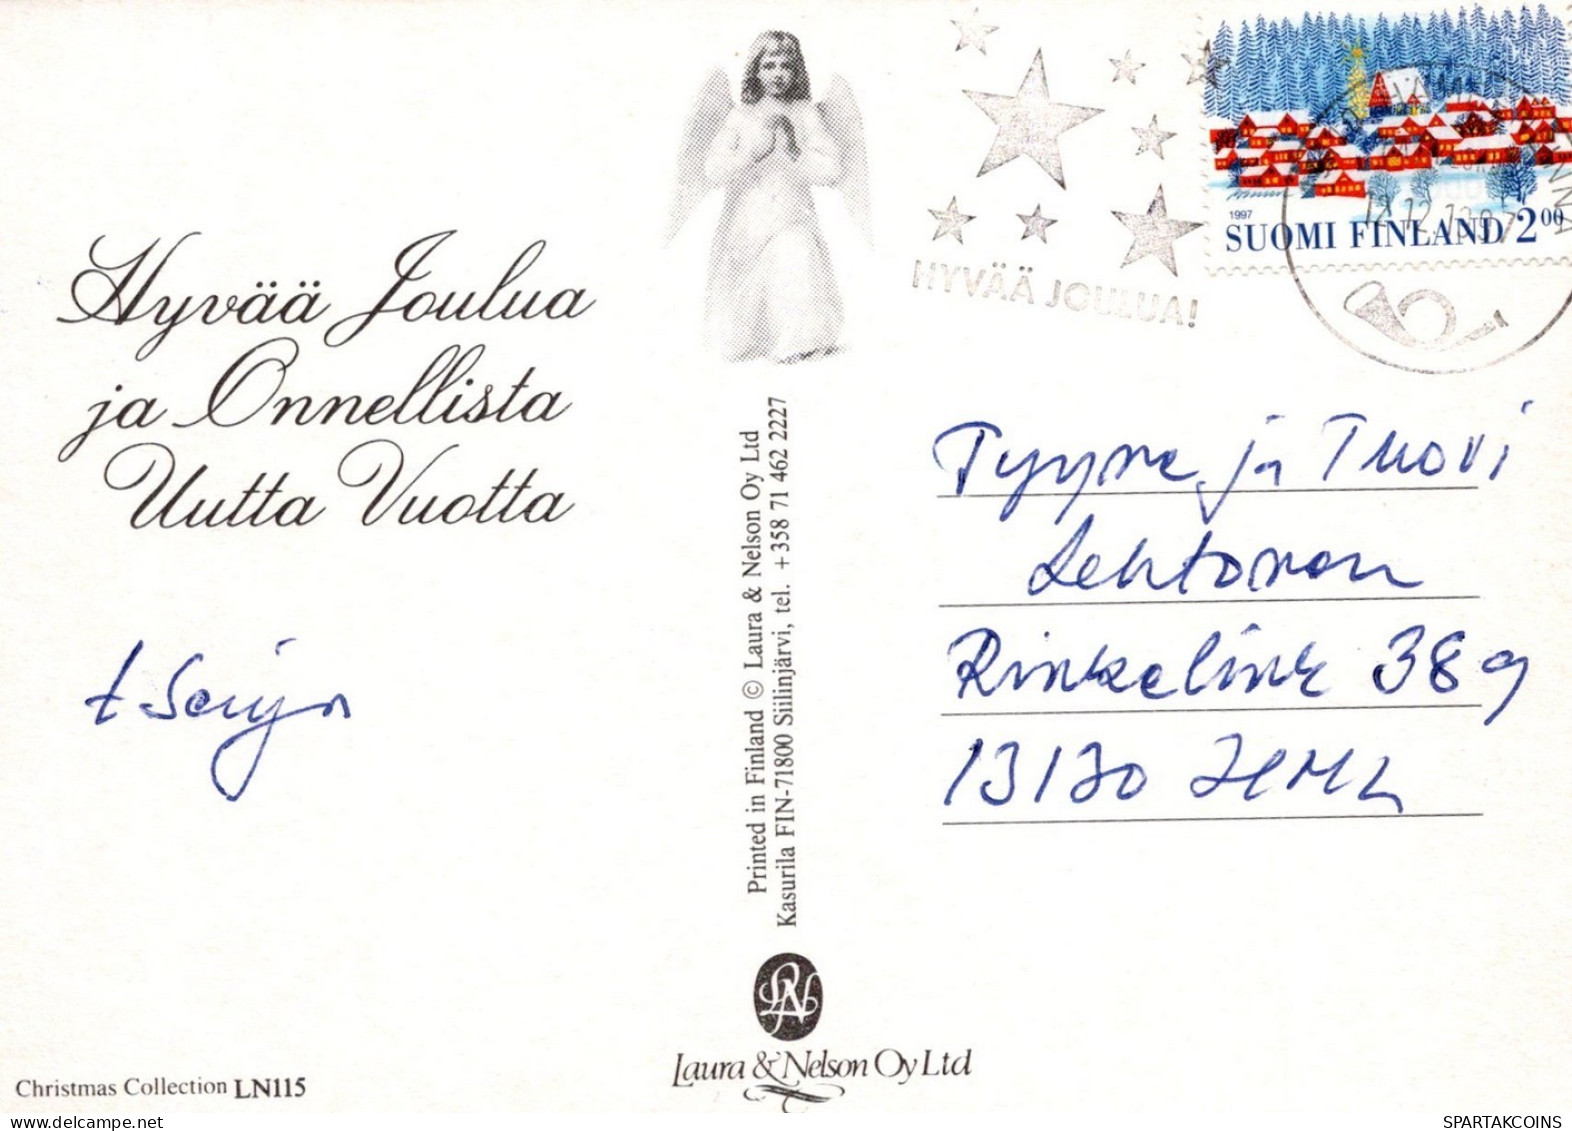 Hyvää Joulua
ja Onnellista
Uutta Vuotta
t Seija
Christmas Collection LN115
Printed in Finland © Laura & Nelson Oy Ltd
Kasurila FIN-71800 Siilinjärvi, tel. +358 71 462 2227
LN
Laura & Nelson Oy Ltd
HYVÄÄ JOULUA!
1997
SUOMI FINLAND 2 00
18.12.1997
Tyyne ja Tuovi
Lehtonen
Rinkelink 38 g
13130 HML
SPARTAKCOINS